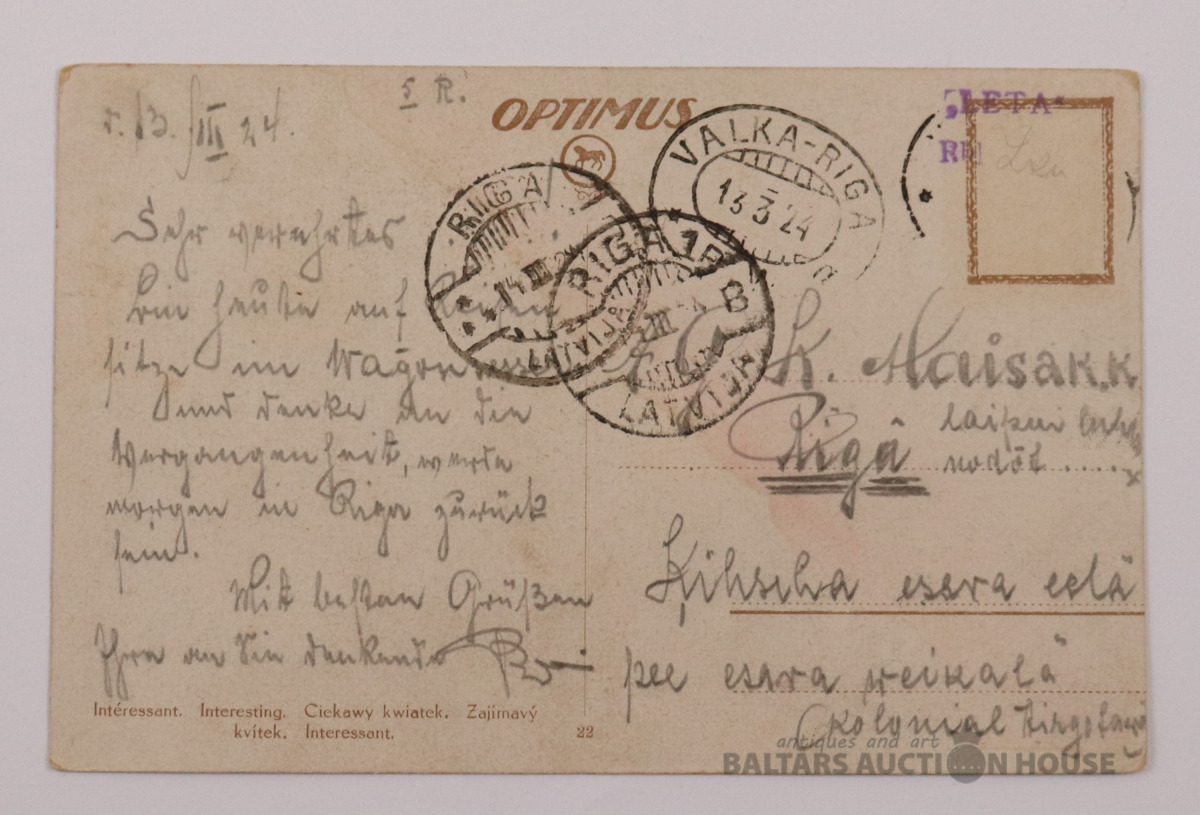 r. 13. III 24.
5 R.
OPTIMUS
VALKA-RIGA
13 3 24
"LETA"
RIGA
14 III
LATVIJA
RIGA 1P
B
III
LATVIJA
Sehr verehrtes
Bin heute auf
sitze im
und denke an die
Vergangenheit, werde
morgen in Riga zurück
sein.
Mit besten Grüßen
Ihre an Sie denkende
K. Maisak.k
Rīgā
laipni
nodot .....
Ķihscha esara eelā
pee esara weikalā
(Kolonial tirgotawa
Intéressant. Interesting. Ciekawy kwiatek. Zajímavý
kvítek. Interessant.
22
antiques and art
BALTARS AUCTION HOUSE